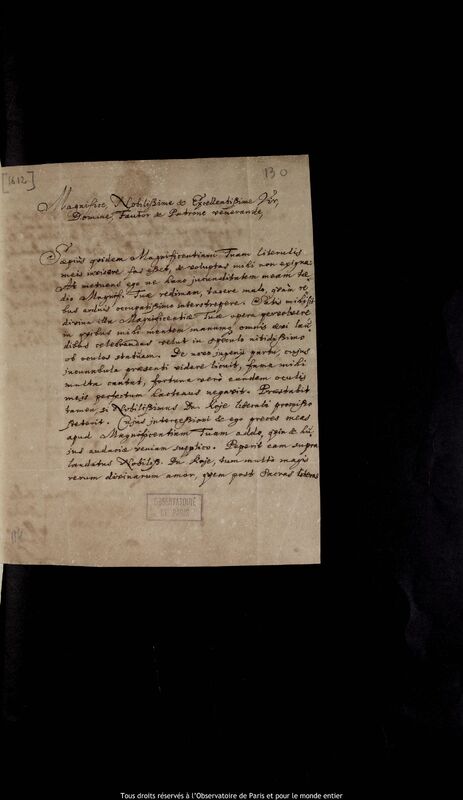 [1612]
130
Magnifice, Nobilissime & Excellentissime Vir,
Domine, Fautor & Patrone venerande,
Sæpius quidem Magnificentiam Tuam literulis
meis invisere fas esset, & voluptas mihi non exigua:
At metuens ego ne hanc jucunditatem meam tæ-
dio Magnif. Tuæ redimam, tacere malo, quam re-
bus arduis occupatissimo interstrepere. Satis mihi sit
divina illa Magnificentiæ Tuæ opera pervolvere
in quibus mihi mentem manumq omnis ævi lau-
dibus celebrandas velut in speculo nitidissimo
ob oculos statuam. De novo ingenij partu, cujus
incunabula præsenti videre licuit, fama mihi
multa cantat, fortuna vero eundem oculis
meis perfectum hactenus negavit. Præstabit
tamen si Nobilissimus Dn. Roje liberali promisso
steterit. Cujus intercessioni & ego preces meas
apud Magnificentiam Tuam addo, quin & hu-
jus audaciæ veniam supplico. Peperit eam supra
laudatus Nobiliss. Dn. Roje, tum multo magis
rerum divinarum amor, quem post Sacras literas
OBSERVATOIRE
DE PARIS
Tous droits réservés à l'Observatoire de Paris et pour le monde entier